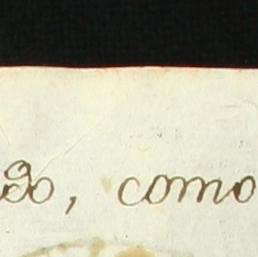 do, como